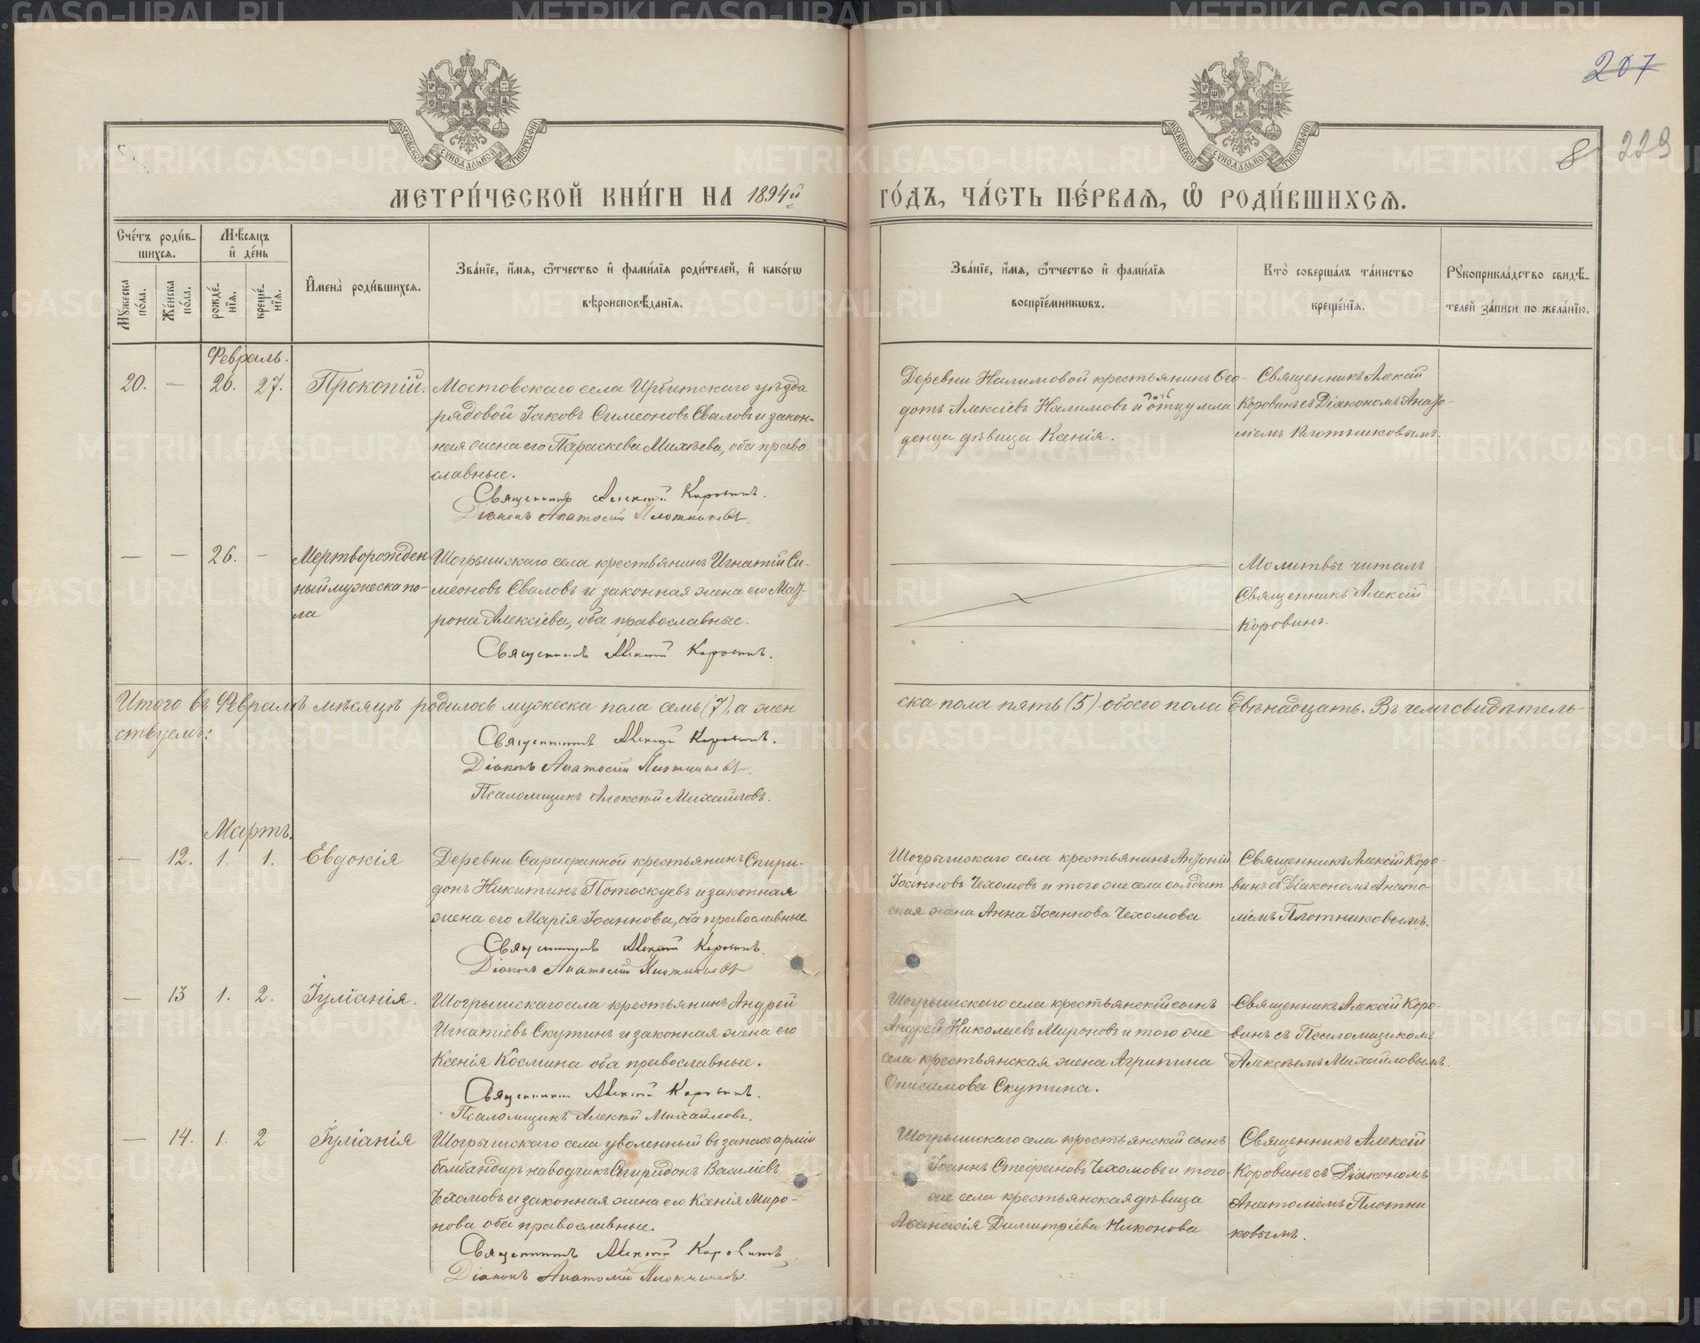 207
8
229
МЕТРИ́ЧЕСКОЙ КНИ́ГИ НА 1894й
ГО́ДЪ, ЧА́СТЬ ПЕ́РВАѦ, Ѡ҆ РОДИ́ВШИХСѦ.
Сче́тъ роди́в-
шихся.
Мѣ́сяцъ
и҆ де́нь
Мꙋ́жеска
по́ла.
Же́нска
по́ла.
рожде́-
нїя.
креще́-
нїя.
И҆мена̀ роди́вшихся.
Зва́нїе, и҆́мя, ѻ҆́тчество и҆ фами́лїя роди́телей, и҆ како́гѡ
вѣроисповѣ́данїя.
Зва́нїе, и҆́мя, ѻ҆́тчество и҆ фами́лїя
воспрїе́мникѡвъ.
Кто̀ соверша́лъ та́инство
креще́нїя.
Рꙋкоприкла́дство свидѣ́-
телей за́писи по жела́нїю.
Февраль.
20. — 26. 27. Прокопій. Мостовскаго села Ирбитскаго уѣзда
рядовой Іаковъ Симеоновъ Сваловъ и закон-
ная жена его Параскева Михѣева, оба право-
славные.
Священникъ Алексій Коровинъ.
Діаконъ Анатолій Плотниковъ.
Деревни Налимовой крестьянинъ Ѳео-
дотъ Алексіевъ Налимовъ и отцу мла
денца дѣвица Ксенія.
Священникъ Алексій
Коровинъ съ Діакономъ Анато-
ліемъ Плотниковымъ.
— — 26. — Мертворожден- Шогрышскаго села крестьянинъ Игнатій Си-
ный мужеска по- меоновъ Сваловъ и законная жена его Мат-
ла рона Алексіева, оба православные.
Священникъ Алексій Коровинъ.
Молитвы читалъ
Священникъ Алексій
Коровинъ.
Итого въ Февралѣ мѣсяцѣ родилось мужеска пола семь (7), а жен
ска пола пять (5) обоего пола двѣнадцать. Въ чемъ свидѣтель-
ствуемъ:
Священникъ Алексій Коровинъ.
Діаконъ Анатолій Плотниковъ.
Псаломщикъ Алексій Михайловъ.
Мартъ.
— 12. 1. 1. Евдокія Деревни Сарафанной крестьянинъ Спири-
донъ Никитинъ Потоскуевъ и законная
жена его Марія Іоаннова, оба православные
Священникъ Алексій Коровинъ.
Діаконъ Анатолій Плотниковъ
Шогрышскаго села крестьянинъ Антоній
Іоанновъ Чехомовъ и того же села солдат
ская жена Анна Іоаннова Чехомова
Священникъ Алексій Коро-
винъ съ Діакономъ Анато-
ліемъ Плотниковымъ.
— 13 1. 2. Іуліанія. Шогрышскаго села крестьянинъ Андрей
Игнатіевъ Скутинъ и законная жена его
Ксенія Космина оба православные.
Священникъ Алексій Коровинъ.
Псаломщикъ Алексій Михайловъ.
Шогрышскаго села крестьянскій сынъ
Андрей Николаевъ Мироновъ и того же
села крестьянская жена Агрипина
Онисимова Скутина.
Священникъ Алексій Коро-
винъ съ Псаломщикомъ
Алексѣемъ Михайловымъ.
— 14. 1. 2 Іуліанія Шогрышскаго села уволенный въ запасъ арміи
бомбандиръ наводчикъ Спиридонъ Василіевъ
Чехомовъ и законная жена его Ксенія Миро-
нова оба православные.
Священникъ Алексій Коровинъ.
Діаконъ Анатолій Плотниковъ
Шогрышскаго села крестьянскій сынъ
Іоаннъ Стефановъ Чехомовъ и того
же села крестьянская дѣвица
Аѳанасія Димитріева Никонова
Священникъ Алексій
Коровинъ съ Діакономъ
Анатоліемъ Плотни
ковымъ.
METRIKI.GASO-URAL.RU